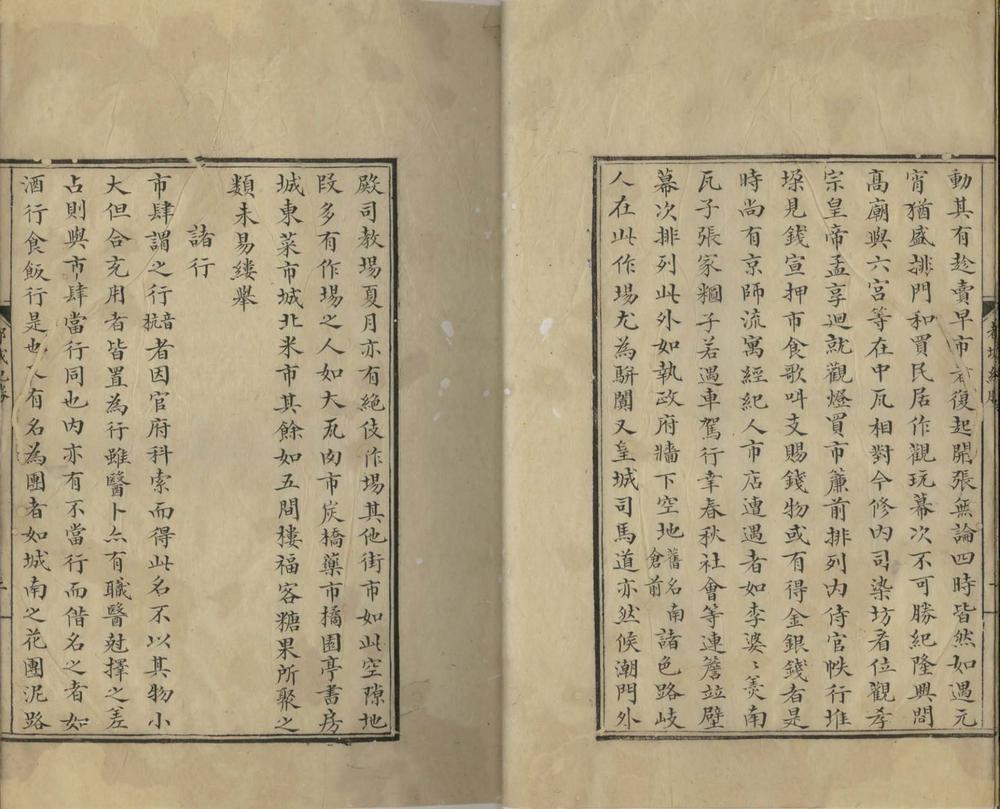 動其有趁賣早市者復起開張無論四時皆然如遇元
宵猶盛排門和買民居作觀玩幕次不可勝紀隆興間
高廟與六宮等在中瓦相對今修內司染坊看位觀孝
宗皇帝孟享迴就觀燈買市簾前排列內侍官帙行堆
垛見錢宣押市食歌叫支賜錢物或有得金銀錢者是
時尚有京師流寓經紀人市店遭遇者如李婆〻羹南
瓦子張家糰子若遇車駕行幸春秋社會等連簷竝壁
幕次排列此外如執政府牆下空地舊名南倉前諸色路岐
人在此作場尤為駢闐又皇城司馬道亦然候潮門外
殿司教場夏月亦有絕伎作場其他街市如此空隙地
段多有作場之人如大瓦肉市炭橋藥市橘園亭書房
城東菜市城北米市其餘如五間樓福客糖果所聚之
類未易縷舉
諸行
市肆謂之行音抗者因官府科索而得此名不以其物小
大但合充用者皆置為行雖醫卜亦有職醫尅擇之差
占則與市肆當行同也內亦有不當行而借名之者如
酒行食飯行是也人有名為團者如城南之花團泥路